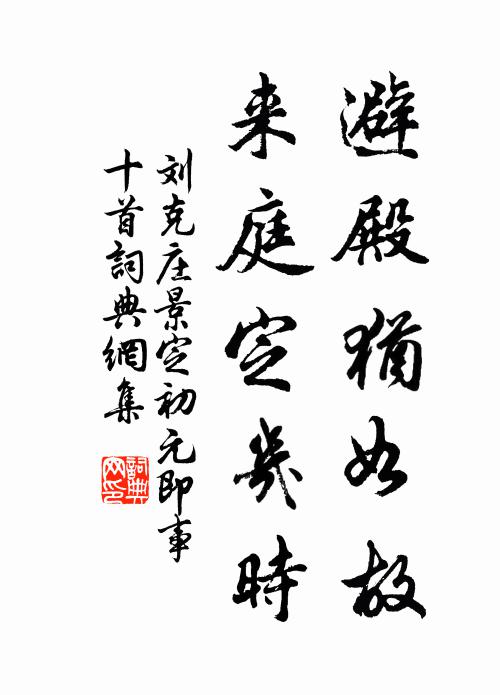 避殿猶如故
来庭定幾時
刘克庄景定初元即事
十首詞典網集
詞典网印